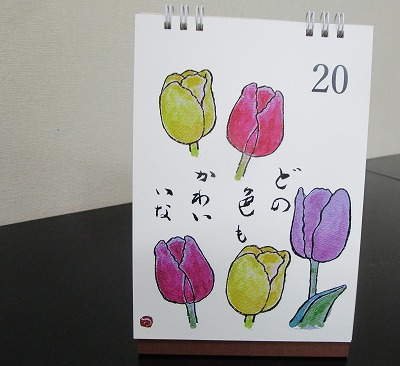 20
どの
色も
かわい
いな